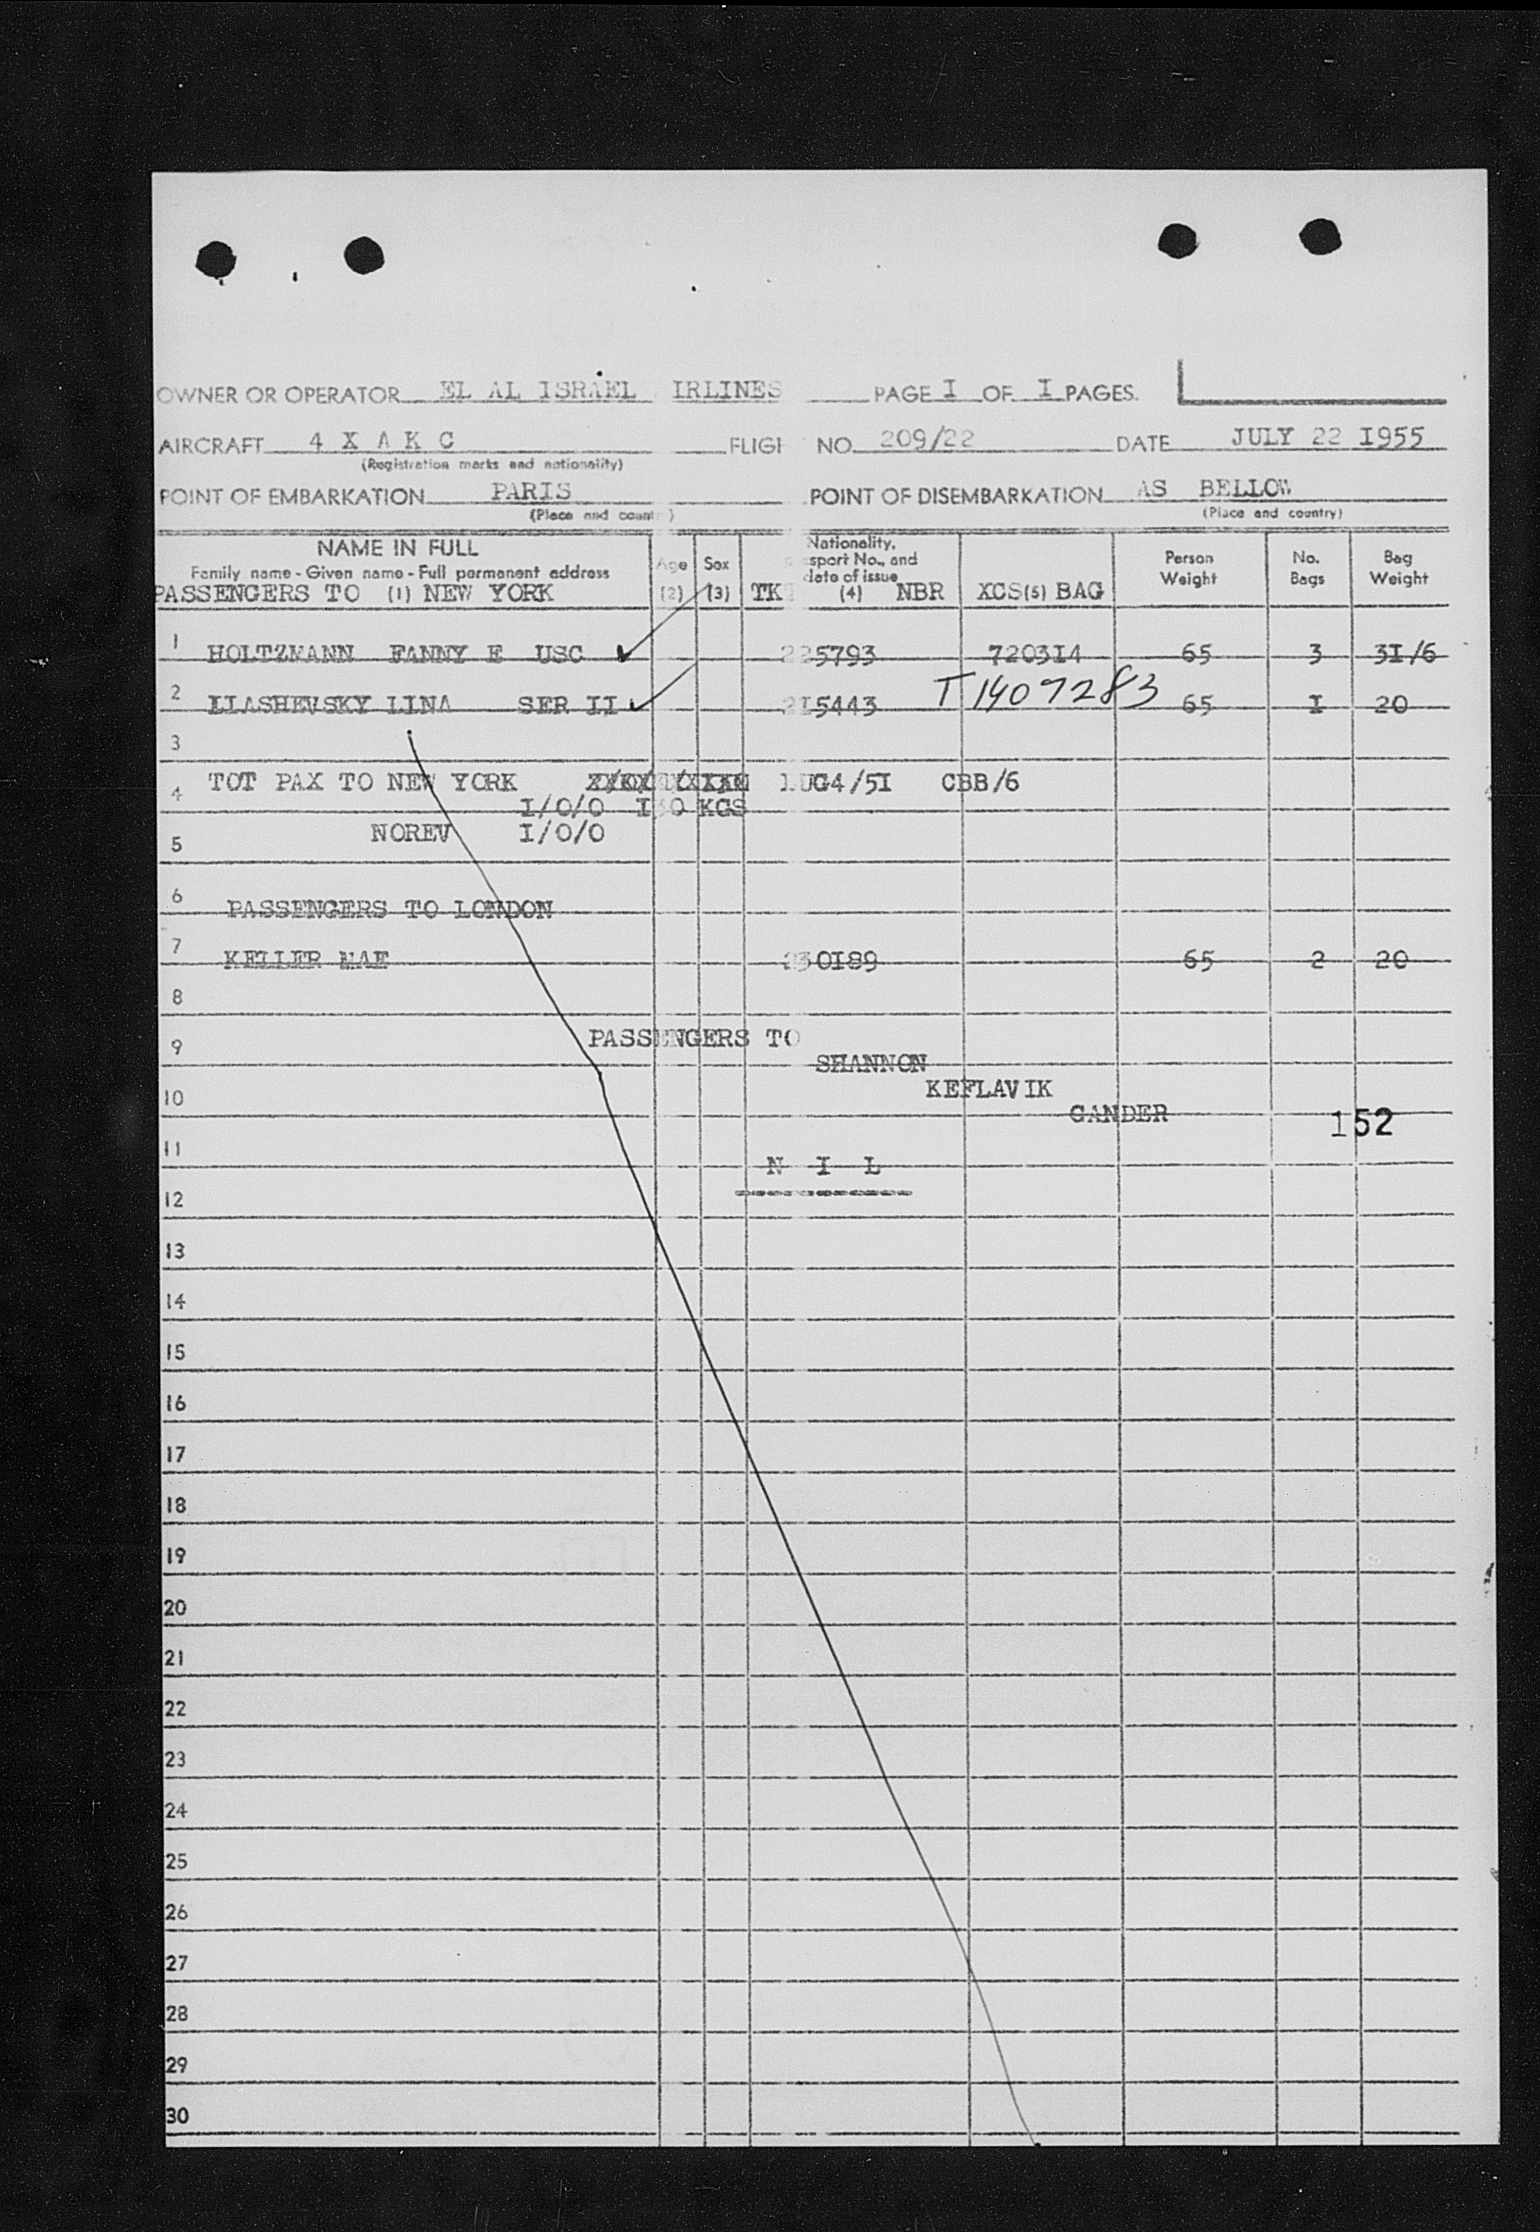 OWNER OR OPERATOR EL AL ISRAEL IRLINES PAGE I OF I PAGES.
AIRCRAFT 4 X A K C FLIGH NO. 209/22 DATE JULY 22 I955
(Registration marks and nationality)
POINT OF EMBARKATION PARIS POINT OF DISEMBARKATION AS BELLOW
(Place and count ) (Place and country)
NAME IN FULL Age Sex Nationality, Person No. Bag
Family name - Given name - Full permanent address sport No., and date of issue Weight Bags Weight
PASSENGERS TO (1) NEW YORK (2) (3) TK (4) NBR XCS(5) BAG
1 HOLTZMANN FANNY E USC 225793 7203I4 65 3 3I/6
2 LIASHEVSKY LINA SER II 2I5443 T1407283 65 I 20
3
4 TOT PAX TO NEW YORK LUG4/5I CBB/6
I/0/0 I30 KGS
5 NOREV I/0/0
6 PASSENGERS TO LONDON
7 KELLER MAE 230I89 65 2 20
8
9 PASSENGERS TO
SHANNON
10 KEFLAVIK
GANDER 152
11 N I L
12
13
14
15
16
17
18
19
20
21
22
23
24
25
26
27
28
29
30